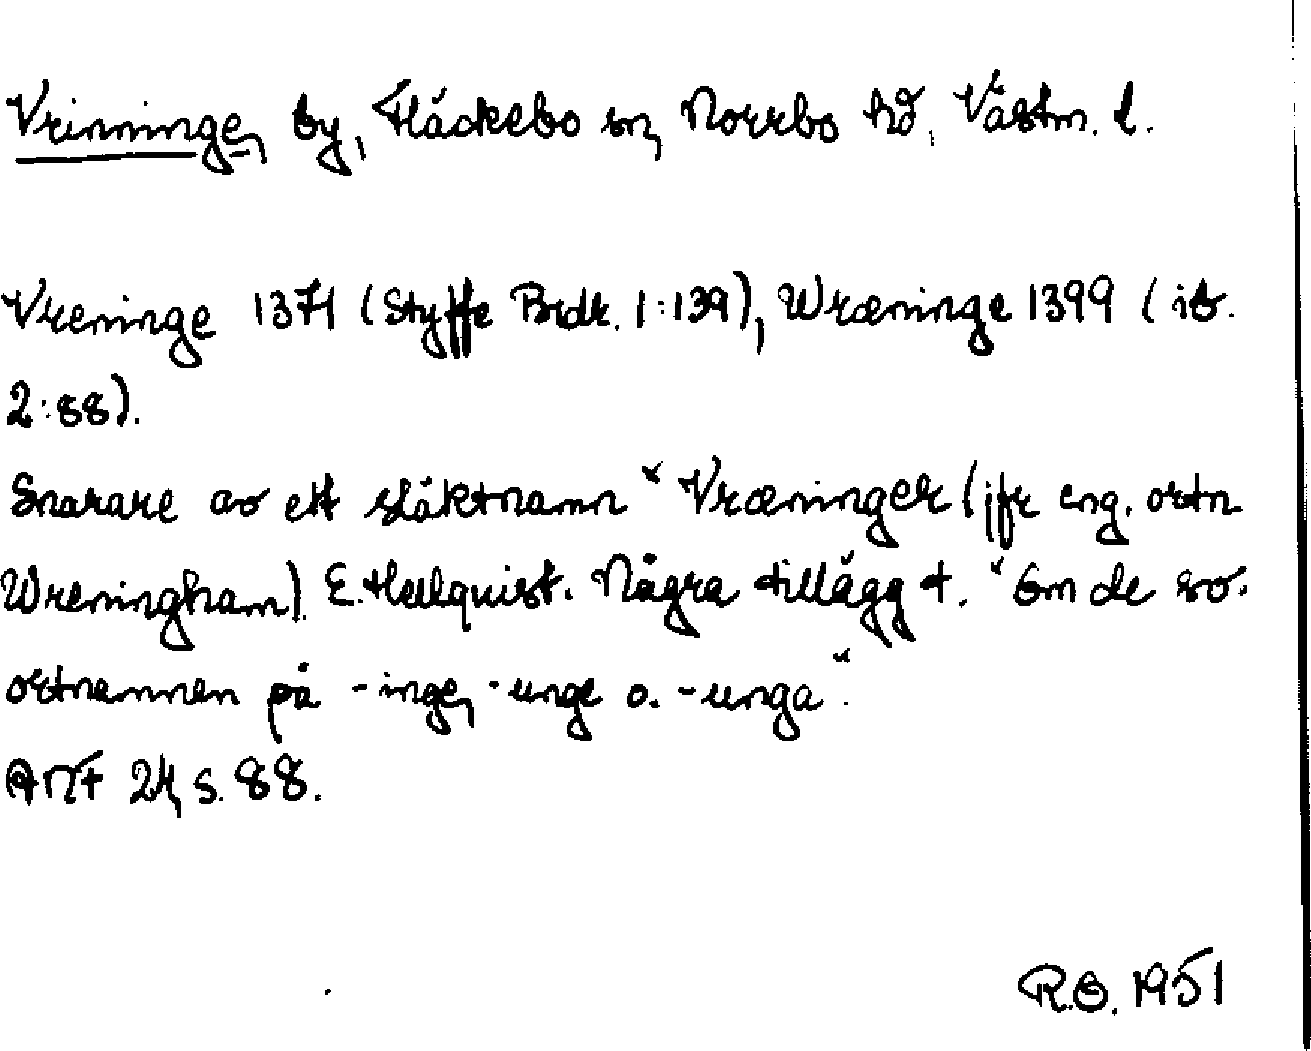 Vrinninge, by, Fläckebo sn, Norrbo hd, Västm. l.
Vreninge 1371 (Styffe Bidr. 1:139), Wræninge 1399 (ib.
2:88).
Snarare av ett släktnamn *Vræninger (jfr eng. ortn
Wreningham). E. Hellquist. Några tillägg t. "Om de sv.
ortnamnen på -inge, -unge o. -unga".
ANF 24, s. 88.
R.O. 1951